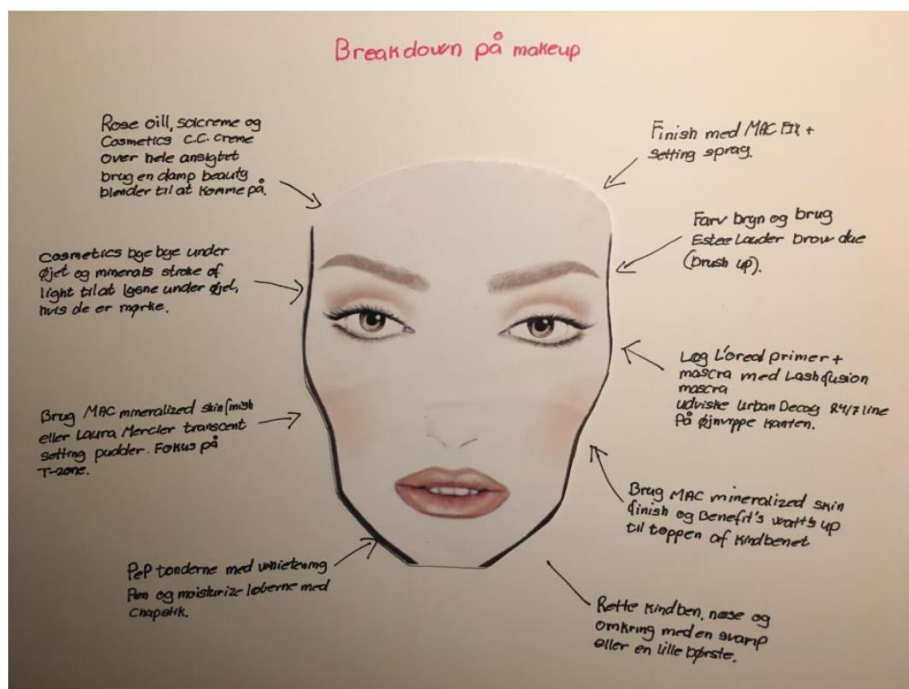 Breakdown på makeup
Rose oill, solcreme og
Cosmetics C.C. creme
over hele ansigtet
brug en damp beauty
blender til at komme på.
Cosmetics bye bye under
øjet og minerals stroke of
light til at lysne under øjet,
hvis de er mørke.
Brug MAC mineralized skinfinish
eller Laura Mercier transcent
setting pudder. Fokus på
T-zone.
PeP tænderne med
Pen og moisturize læberne med
Chapstik.
Finish med MAC FIX +
setting spray.
Farv bryn og brug
Estee Lauder brow due
(brush up).
Læg L'oreal primer +
mascra med Lash fusion
mascra
udviske Urban Decay 24/7 line
På øjnvippe kanten.
Brug MAC mineralized skin
finish og Benefit's watt's up
til toppen af kindbenet
Rette kindben, næse og
omkring med en svamp
eller en lille børste.